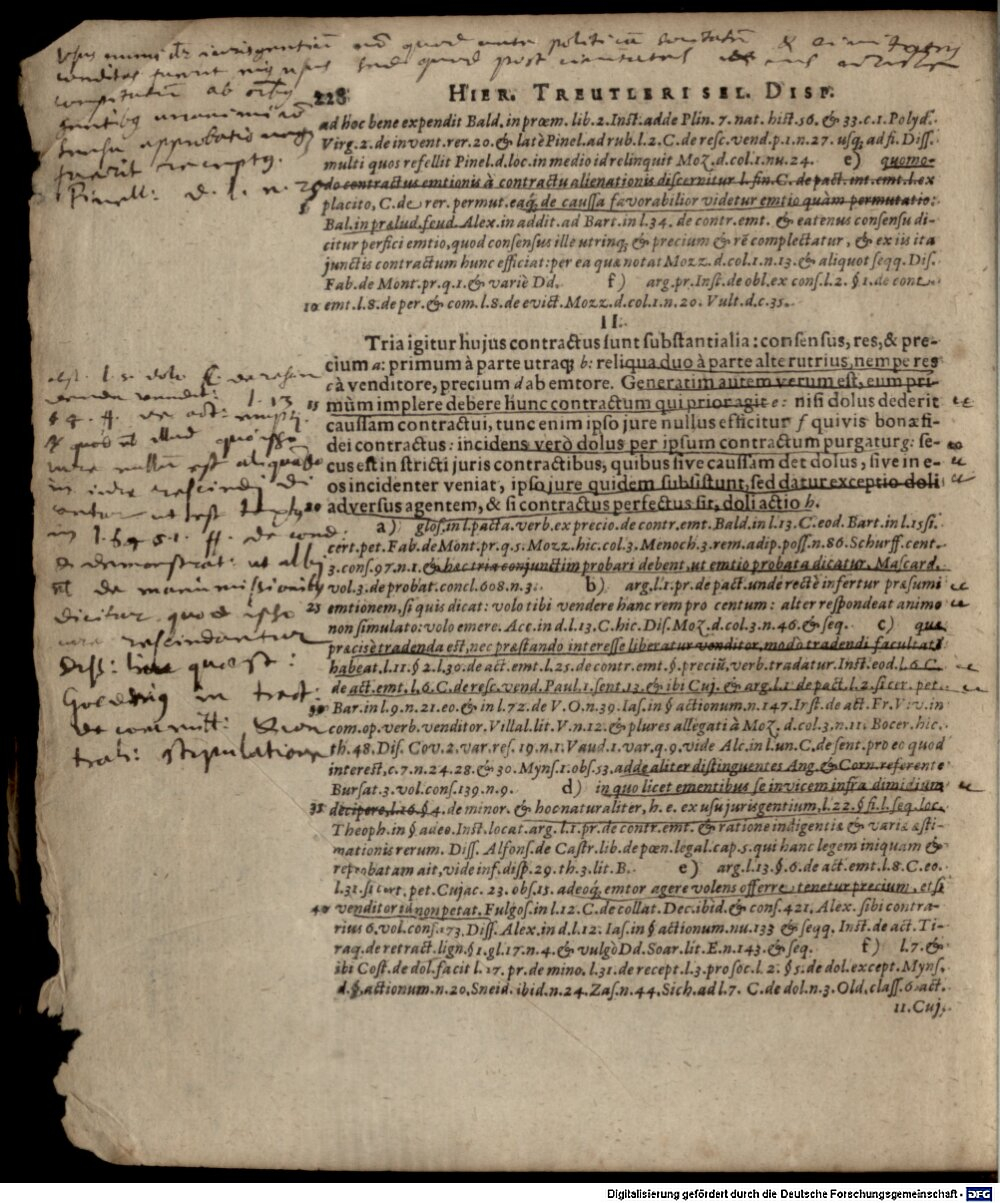 Usus enim
conditas fuerint
ab orbe
gentibus
approbatio
fuerit receptus.
Pinell: d. l. n. 25
228 HIER. TREUTLERI SEL. DISP.
ad hoc bene expendit Bald. in prœm. lib. 2. Inst. adde Plin. 7. nat. hist. 56. & 33. c. 1. Polyd.
Virg. 2. de invent. rer. 20. & latè Pinel. ad rub. l. 2. C. de resc. vend. p. 1. n. 27. usq; ad fi. Diss.
multi quos refellit Pinel. d. loc. in medio id relinquit Moz. d. col. 1. nu. 24. e) quomo-
do contractus emtionis à contractu alienationis discernitur l. fin. C. de pact. int. emt. l. ex
5 placito, C. de rer. permut. eaq; de caussa favorabilior videtur emtio quàm permutatio:
Bal. in prælud. feud. Alex. in addit. ad Bart. in l. 34. de contr. emt. & eatenus consensu di-
citur perfici emtio, quod consensus ille utrinq; & precium & rē complectatur, & ex iis ita
junctis contractum hunc efficiat: per ea quæ notat Mozz. d. col. 1. n. 13. & aliquot seqq. Dis.
Fab. de Mont. pr. q. 1. & variè Dd. f) arg. pr. Inst. de obl. ex cons. l. 2. § 1. de cont.
10 emt. l. 8. de per. & com. l. 8. de evict. Mozz. d. col. 1. n. 20. Vult. d. c. 35.
II.
Tria igitur hujus contractus sunt substantialia: consensus, res, & pre-
cium a: primum à parte utraq; b: reliqua duo à parte alterutrius, nempe res
c à venditore, precium d ab emtore. Generatim autem verum est, eum pri-
15 mùm implere debere hunc contractum qui prior agit e: nisi dolus dederit
caussam contractui, tunc enim ipso jure nullus efficitur f quivis bonæ fi-
dei contractus: incidens verò dolus per ipsum contractum purgatur g: se-
cus est in stricti juris contractibus, quibus sive caussam det dolus, sive in e-
os incidenter veniat, ipso jure quidem subsistunt, sed datur exceptio doli
20 adversus agentem, & si contractus perfectus sit, doli actio h.
a) glos. in l. pacta. verb. ex precio. de contr. emt. Bald. in l. 13. C. eod. Bart. in l. 15 si.
cert. pet. Fab. de Mont. pr. q. 5. Mozz. hic. col. 3. Menoch. 3. rem. adip. poss. n. 86. Schurff. cent.
3. cons. 97. n. 1. & hæc tria conjunctim probari debent, ut emtio probata dicatur. Mascard.
vol. 3. de probat. concl. 608. n. 3. b) arg. l. 1. pr. de pact. unde rectè infertur præsumi
25 emtionem, si quis dicat: volo tibi vendere hanc rem pro centum: alter respondeat animo
non simulato: volo emere. Acc. in d. l. 13. C. hic. Dis. Moz. d. col. 3. n. 46. & seq. c) quæ
præcisè tradenda est, nec præstando interesse liberatur venditor, modo tradendi facultatē
habeat. l. 11. § 2. l. 30. de act. emt. l. 25. de contr. emt. §. preciū, verb. tradatur. Inst. eod. l. 6 C.
de act. emt. l. 6. C. de resc. vend. Paul. 1. sent. 13. & ibi Cuj. & arg. l. 1. de pact. l. 2. si cer. pet.
30 Bar. in l. 9. n. 21. eo. & in l. 72. de V. O. n. 39. Ias. in § actionum. n. 147. Inst. de act. Fr. Viv. in
com. op. verb. venditor. Villal. lit. V. n. 12. & plures allegati à Moz. d. col. 3. n. 11. Bocer. hic.
th. 48. Dis. Cov. 2. var. res. 19. n. 1. Vaud. 1. var. q. 9. vide Alc. in l. un. C. de sent. pro eo quod
interest, c. 7. n. 24. 28. & 30. Myns. 1. obs. 53. adde aliter distinguentes Ang. & Corn. referente
Bursat. 3. vol. cons. 139. n. 9. d) in quo licet ementibus se invicem infra dimidium
35 decipere, l. 16. § 4. de minor. & hoc naturaliter, h. e. ex usu jurisgentium, l. 22. § fi. l. seq. loc.
Theoph. in § adeo. Inst. locat. arg. l. 1. pr. de contr. emt. & ratione indigentiæ & variæ æsti-
mationis rerum. Diss. Alfons. de Castr. lib. de pœn. legal. cap. 5. qui hanc legem iniquam &
reprobatam ait, vide inf. disp. 29. th. 3. lit. B. e) arg. l. 13. §. 6. de act. emt. l. 8. C. eo.
l. 31. si cert. pet. Cujac. 23. obs. 15. adeoq; emtor agere volens offerre tenetur precium, etsi
40 venditor id non petat. Fulgos. in l. 12. C. de collat. Dec. ibid. & cons. 421. Alex. sibi contra-
rius 6. vol. cons. 173. Diss. Alex. in d. l. 12. Ias. in § actionum. nu. 133 & seqq. Inst. de act. Ti-
raq. de retract. lign. § 1. gl. 17. n. 4. & vulgò Dd. Soar. lit. E. n. 143. & seq. f) l. 7. &
ibi Cost. de dol. facit l. 17. pr. de mino. l. 31. de recept. l. 3. pro soc. l. 2. § 5. de dol. except. Myns.
d. §. actionum. n. 20. Sneid. ibid. n. 24. Zas. n. 44. Sich. ad l. 7. C. de dol. n. 3. Old. class. 6. act.
11. Cuj.
obst. l. 5. C. de rescin
denda vendit: l. 13
§ 4. ff. de act: empti
nullum est
rescindi di
in l. ff. de cond:
& demonstrat: ut
de manumissionib
dicitur quod ipso
rescindantur
Diss: quæst:
in tract:
trah: stipulatione
Digitalisierung gefördert durch die Deutsche Forschungsgemeinschaft - DFG